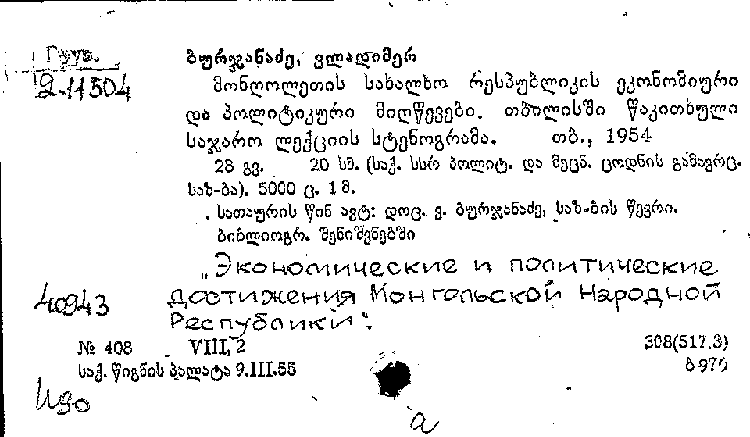 Груз.
2-11504
ბურჯანაძე, ვლადიმერ
მონღოლეთის სახალხო რესპუბლიკის ეკონომიური
და პოლიტიკური მიღწევები. თბილისში წაკითხული
საჯარო ლექციის სტენოგრამა. თბ., 1954
28 გვ. 20 სმ. (საქ. სსრ პოლიტ. და მეცნ. ცოდნის გამავრც.
საზ-ბა). 5000 ც. 1 მ.
სათაურის წინ ავტ: დოც. ვ. ბურჯანაძე, საზ-ბის წევრი.
ბიბლიოგრ. შენიშვნებში
„Экономические и политические
достижения Монгольской Народной
Республики".
40943
№ 408 VIII, 2 308(517.3)
საქ. წიგნის პალატა 9.III.55 ბ 979
а